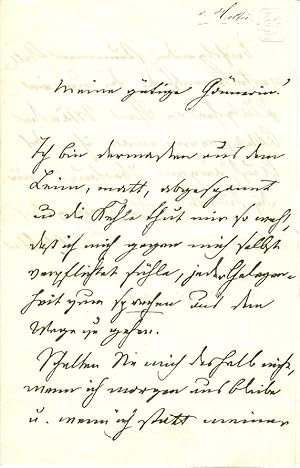 Meine gütige Gönnerin!
Ich bin dermaßen aus dem
Leim, matt, abgespannt
und die Kehle thut mir so weh,
daß ich mich gegen mich selbst
verpflichtet fühle, jeder Gelegen-
heit zum sprechen aus dem
Wege zu gehen.
Schelten Sie mich deshalb nicht,
wenn ich morgen ausbleibe
u. wenn ich statt meiner